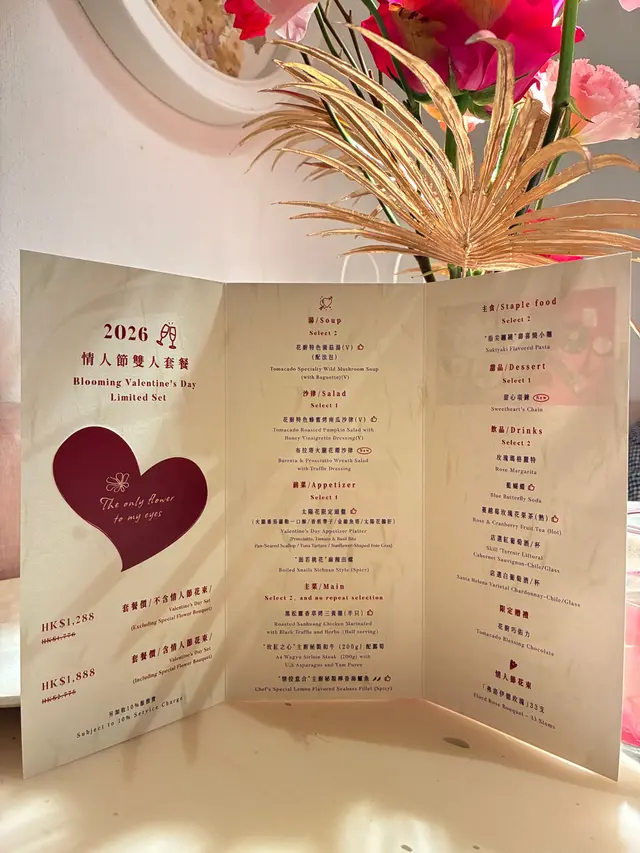 2026
情人節雙人套餐
Blooming Valentine's Day
Limited Set
The only flower
to my eyes
套餐價/不含情人節花束/
Valentine's Day Set
(Excluding Special Flower Bouquet)
HK$1,288
套餐價/含情人節花束/
Valentine's Day Set
(Including Special Flower Bouquet)
HK$1,888
另加收10%服務費
Subject to 10% Service Charge
湯/Soup
Select 2
花廚特色菌菇湯(V)
(配法包)
Tomacado Specialty Wild Mushroom Soup
(with Baguette)(V)
沙律/Salad
Select 1
花廚特色蜂蜜烤南瓜沙律(V)
Tomacado Roasted Pumpkin Salad with
Honey Vinaigrette Dressing(V)
布拉塔火腿花環沙律 New
Burrata & Prosciutto Wreath Salad
with Truffle Dressing
前菜/Appetizer
Select 1
太陽花限定頭盤
Valentine's Day Appetizer Platter
(Prosciutto, Tomato & Basil Bite
Pan-Seared Scallop / Tuna Tartare / Sunflower-Shaped Foie Gras)
Boiled Snails Sichuan Style (Spicy)
主菜/Main
Select 2, and no repeat selection
Roasted Sanhuang Chicken Marinated
with Black Truffle and Herbs (Half serving)
A4 Wagyu Sirloin Steak (200g) with
U.S Asparagus and Yam Puree
Chef's Special Lemon Flavored Seabass Fillet (Spicy)
主食/Staple food
Select 2
Sukiyaki Flavored Pasta
甜品/Dessert
Select 1
甜心項鍊 New
Sweetheart's Chain
飲品/Drinks
Select 2
玫瑰瑪格麗特
Rose Margarita
藍蝴蝶
Blue Butterfly Soda
蔓越莓玫瑰花果茶(熱)
Rose & Cranberry Fruit Tea (Hot)
店選紅葡萄酒/杯
Cabernet Sauvignon-Chile/Glass
店選白葡萄酒/杯
Santa Helena Varietal Chardonnay-Chile/Glass
限定贈禮
花廚巧克力
Tomacado Blessing Chocolate
情人節花束
「弗洛伊德玫瑰」33支
Floyd Rose Bouquet - 33 Stems